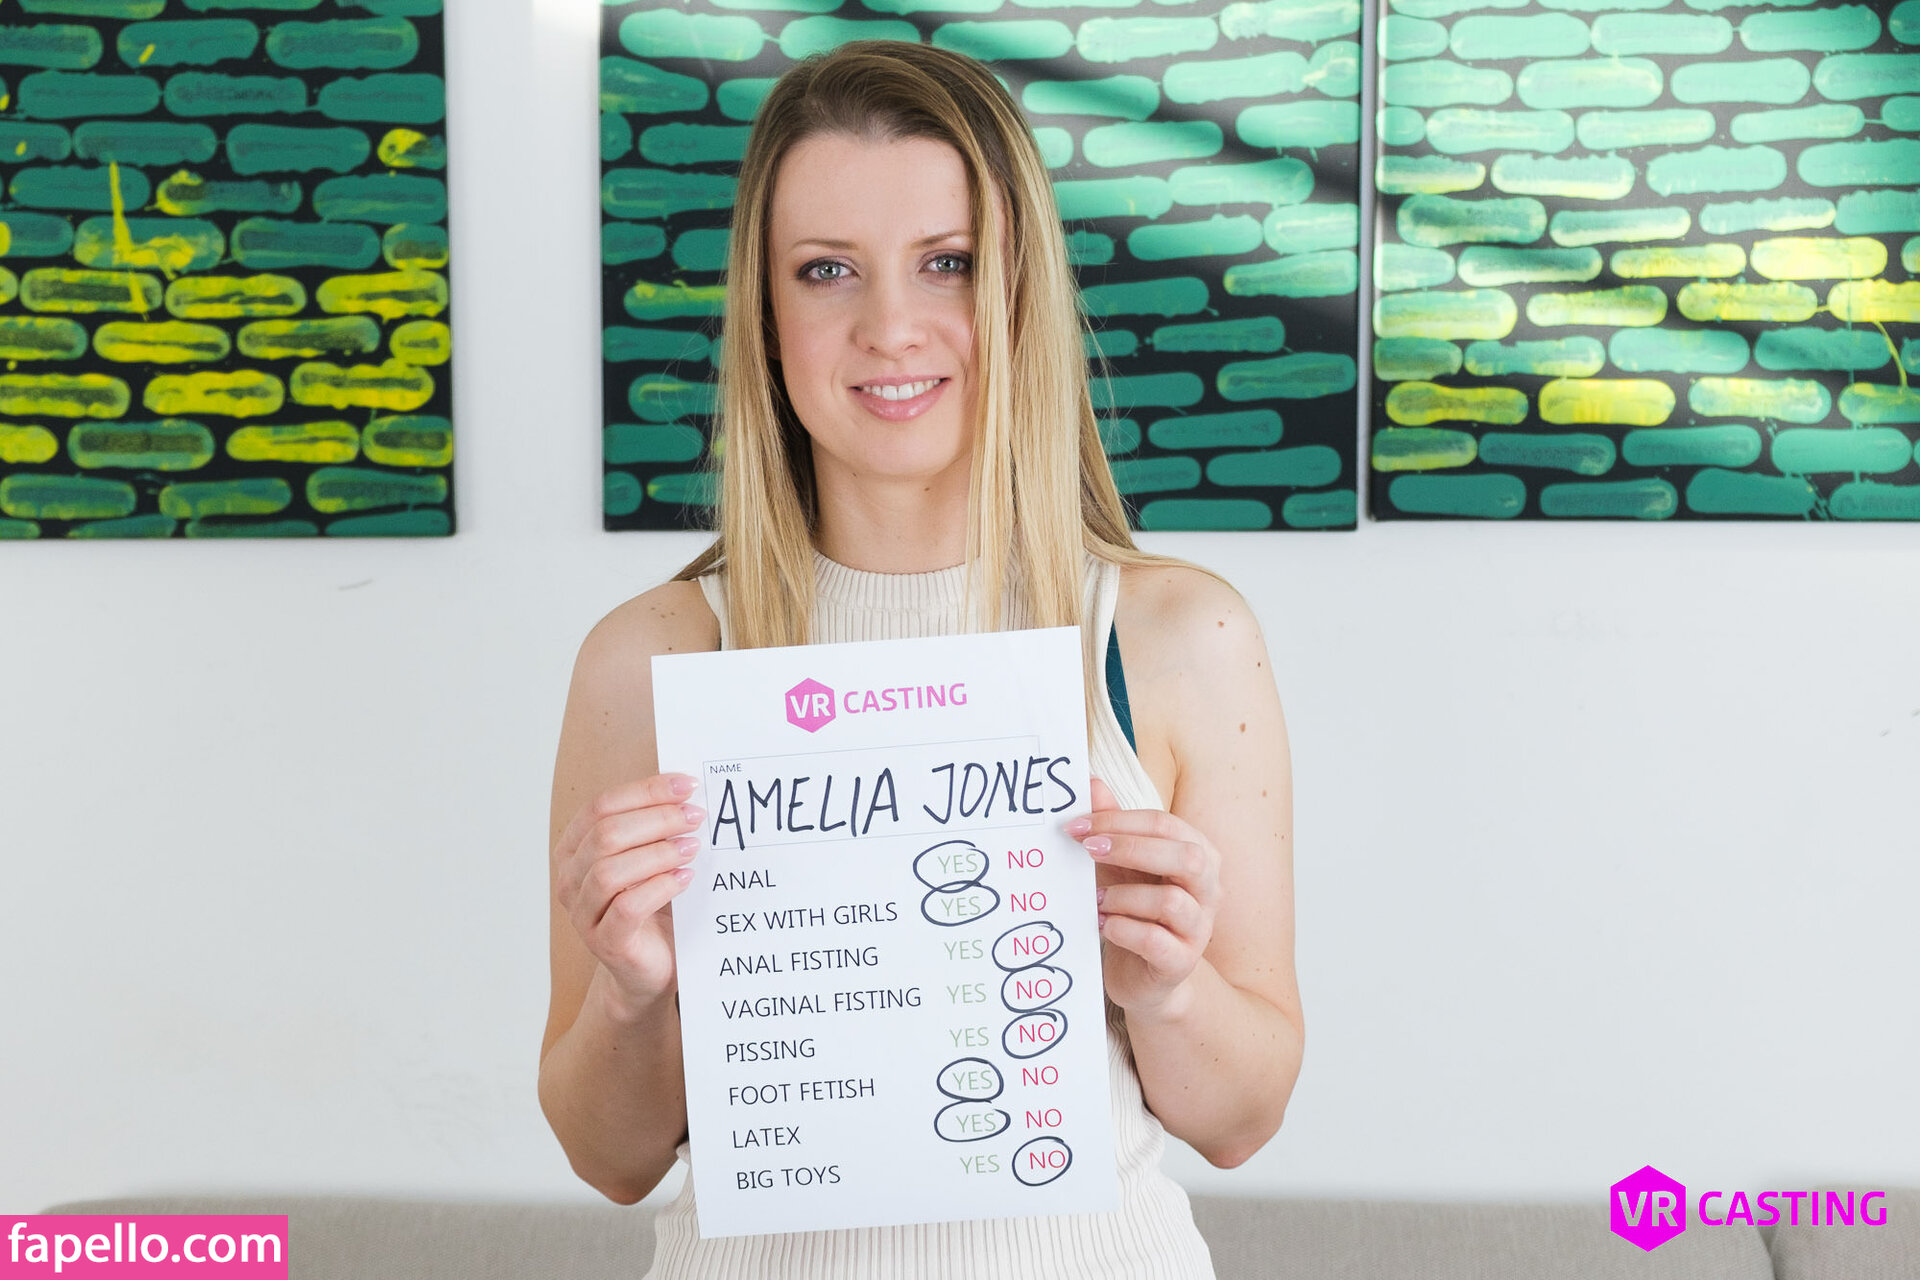 VR CASTING
NAME
AMELIA JONES
ANAL YES NO
SEX WITH GIRLS YES NO
ANAL FISTING YES NO
VAGINAL FISTING YES NO
PISSING YES NO
FOOT FETISH YES NO
LATEX YES NO
BIG TOYS YES NO
fapello.com
VR CASTING